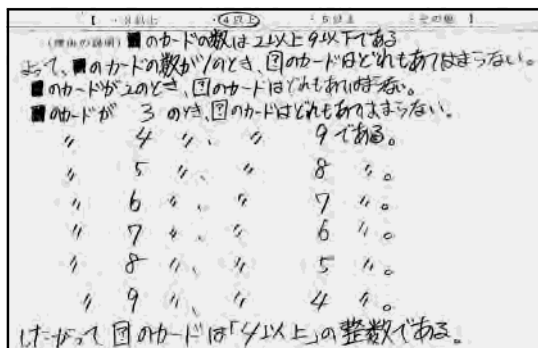 【 ・3以上 ・4以上 ・5以上 ・その他 】
(理由の説明) ■のカードの数は2以上9以下である
よって、■のカードの数が1のとき、図のカードはどれもあてはまらない。
■のカードが2のとき、図のカードはどれもあてはまらない。
■のカードが 3 のとき、図のカードはどれもあてはまらない。
〃 4 〃、 〃 9 である。
〃 5 〃、 〃 8 〃。
〃 6 〃、 〃 7 〃。
〃 7 〃、 〃 6 〃。
〃 8 〃、 〃 5 〃。
〃 9 〃、 〃 4 〃。
したがって 図のカードは「4以上」の整数である。